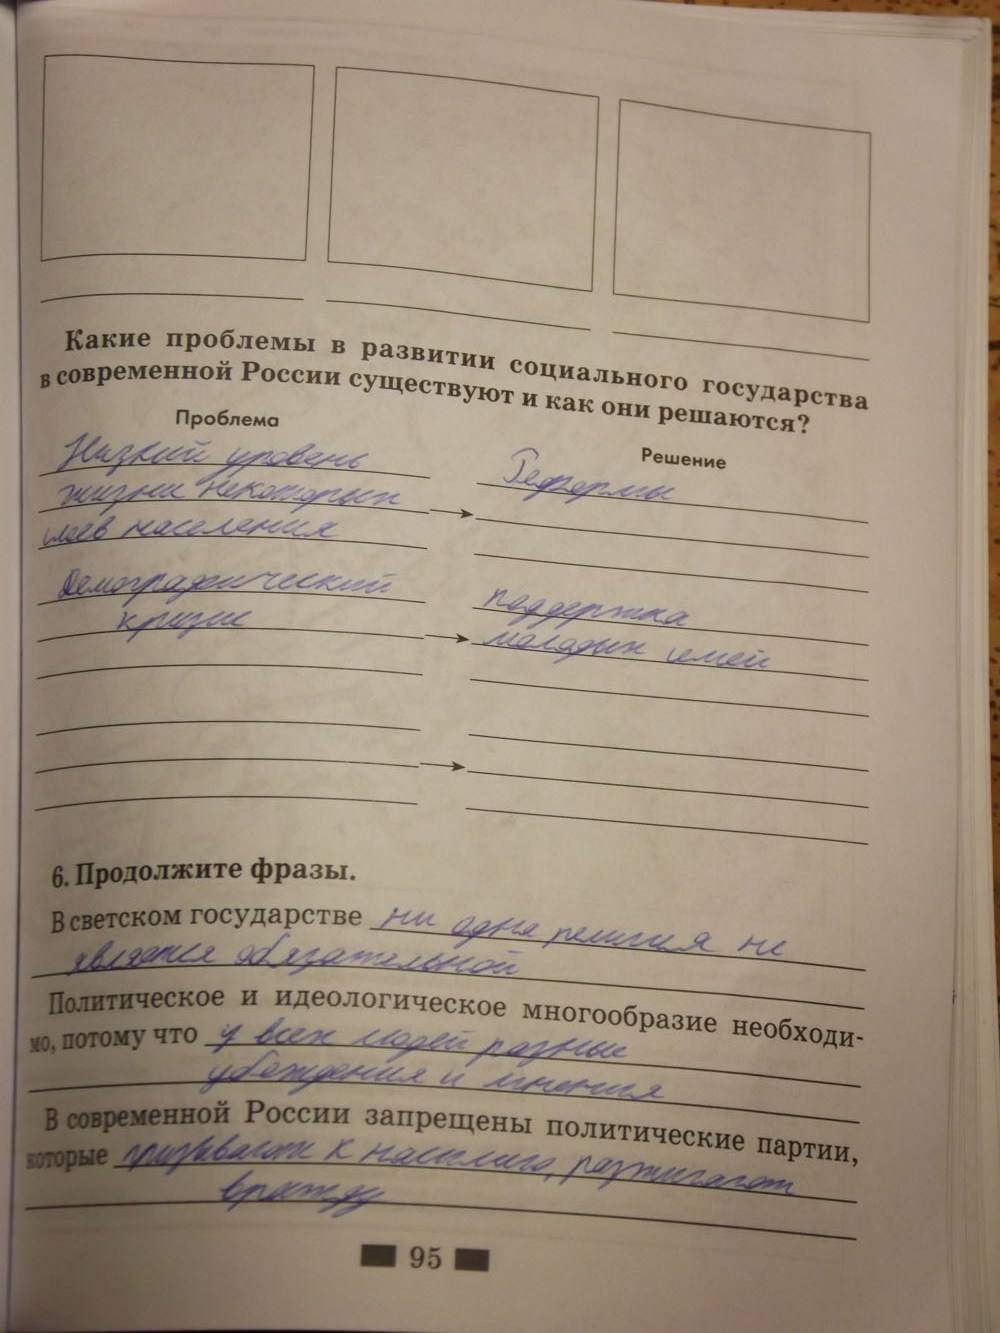 Какие проблемы в развитии социального государства
в современной России существуют и как они решаются?
Проблема
Решение
Низкий уровень
жизни некоторых
слоев населения
Реформы
Демографический
кризис
поддержка
молодых семей
6. Продолжите фразы.
В светском государстве ни одна религия не
является обязательной
Политическое и идеологическое многообразие необходи-
мо, потому что у всех людей разные
убеждения и мнения
В современной России запрещены политические партии,
которые призывают к насилию, разжигают
вражду
95